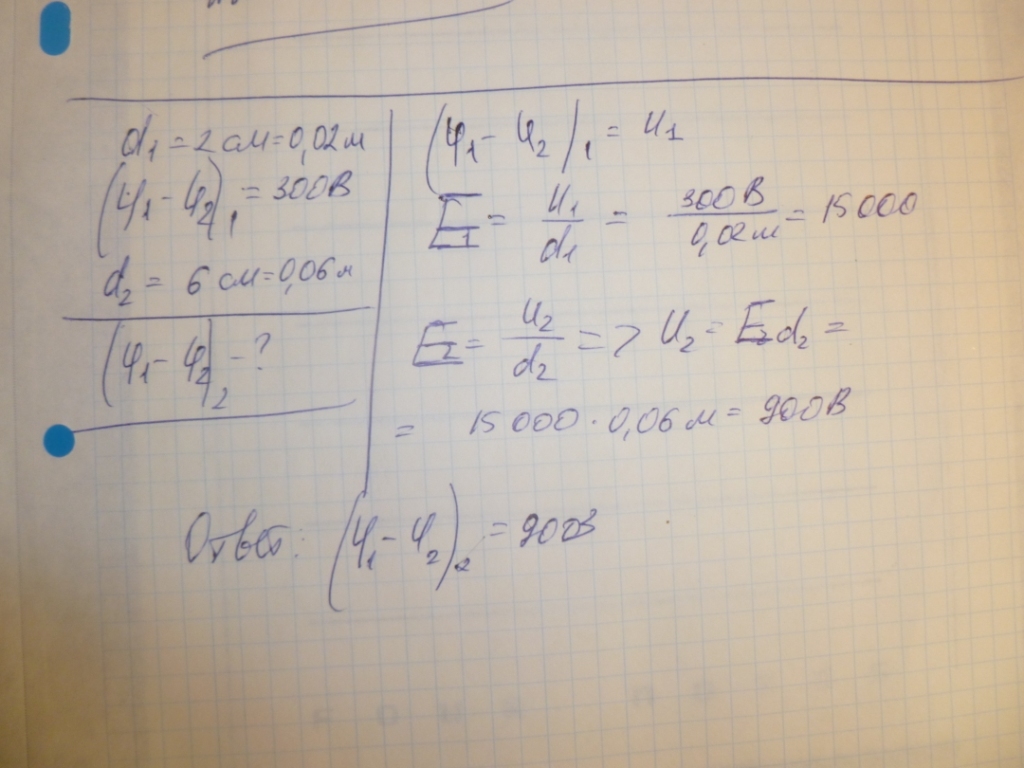 d₁ = 2 см = 0,02 м
(φ₁ - φ₂)₁ = 300В
d₂ = 6 см = 0,06 м
(φ₁ - φ₂)₂ - ?
(φ₁ - φ₂)₁ = U₁
E₁ = U₁/d₁ = 300В/0,02м = 15000
E₂ = U₂/d₂ => U₂ = E₂d₂ =
= 15 000 · 0,06 м = 900В
Ответ: (φ₁ - φ₂)₂ = 900В